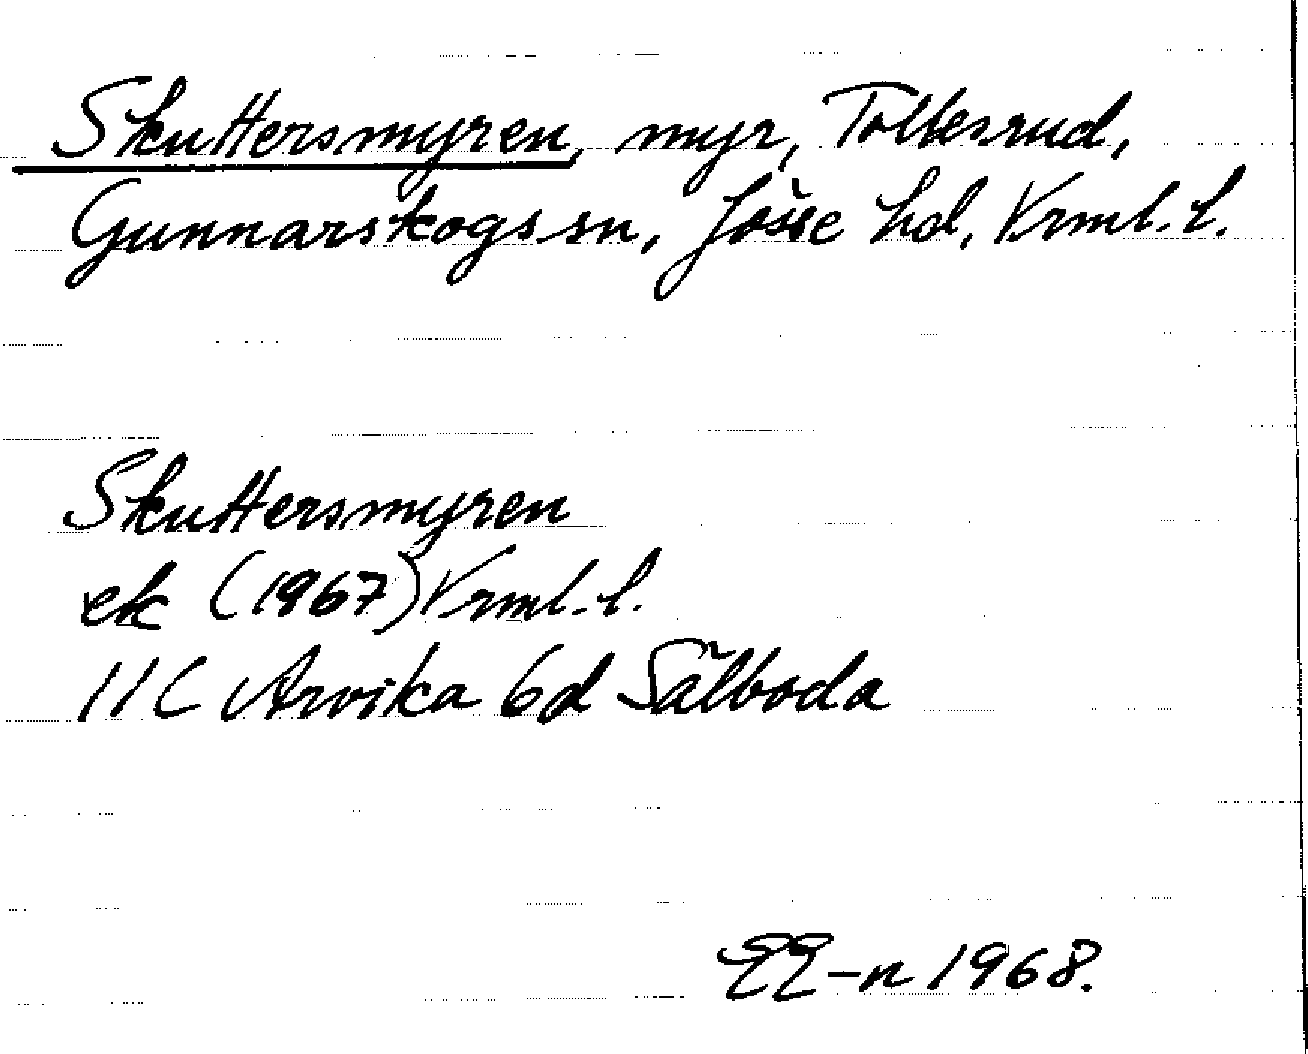 Skuttersmyren, myr, Tolbesrud,
Gunnarskogs sn, Jösse hd, Vrml. l.
Skuttersmyren
ek (1967) Vrml. l.
11C Arvika 6d Sälboda
EE-n 1968.